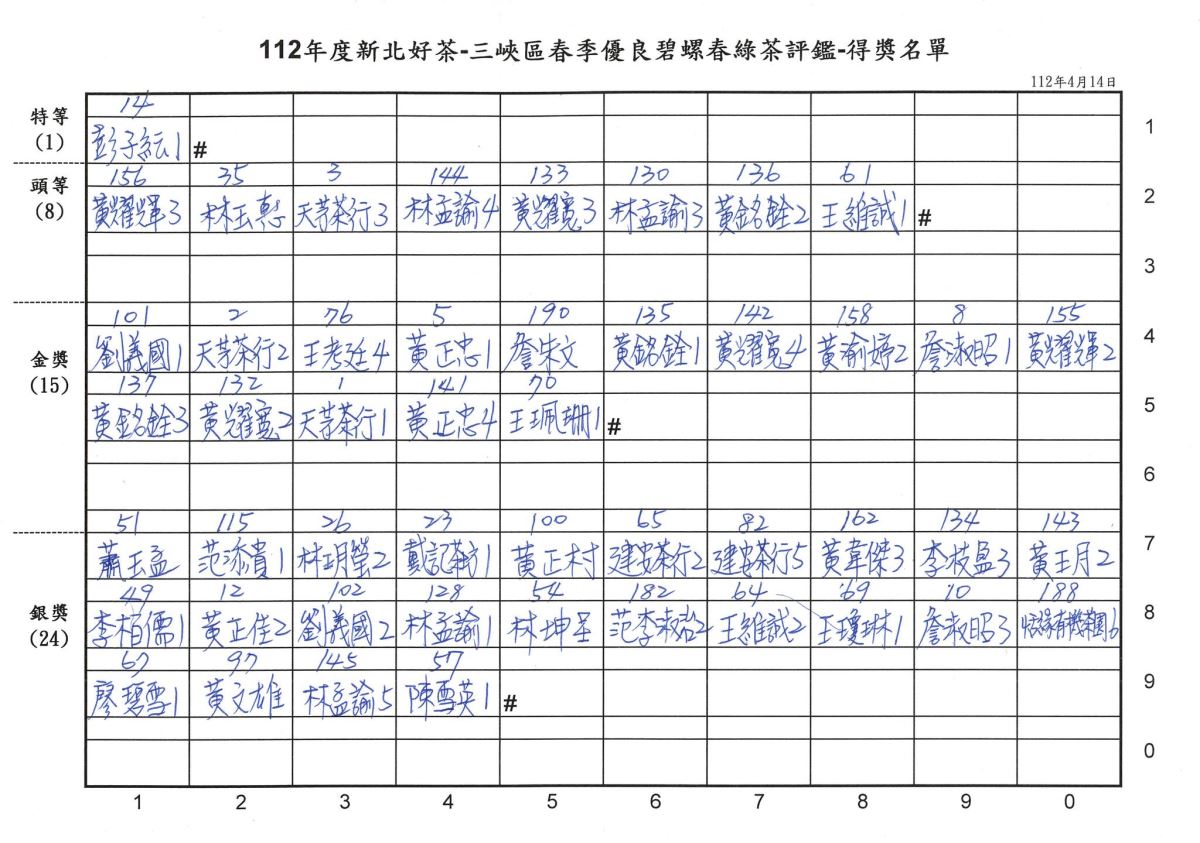 112年度新北好茶-三峽區春季優良碧螺春綠茶評鑑-得獎名單
112年4月14日
14
特等
(1)
彭子紜1 #
1
156 35 3 144 133 130 136 61
頭等
(8)
黃耀輝3 林玉專 天芳茶行3 林孟諭4 黃耀寬3 林孟諭3 黃銘銓2 王維誠1 #
2
3
101 2 76 5 190 135 142 158 8 155
劉義國1 天芳茶行2 王考廷4 黃正忠1 詹朱文 黃銘銓1 黃耀寬4 黃渝婷2 詹淑昭1 黃耀輝2
4
金獎
(15)
137 132 1 141 70
黃銘銓3 黃耀寬2 天芳茶行1 黃正忠4 王珮珊1 #
5
6
51 115 26 23 100 65 82 162 134 143
蕭玉孟 范添貴1 林玥螢2 戴記茶方1 黃正村 建安茶行2 建安茶行5 黃韋傑3 李枝盈3 黃玉月2
7
銀獎
(24)
49 12 102 128 54 182 64 69 10 188
李柏儒1 黃正佳2 劉義國2 林孟諭1 林坤 范李 2 王維誠2 王瓊琳1 詹淑昭3 有機茶園6
8
67 97 145 57
廖碧雪1 黃文雄 林孟諭5 陳雪英1 #
9
0
1 2 3 4 5 6 7 8 9 0